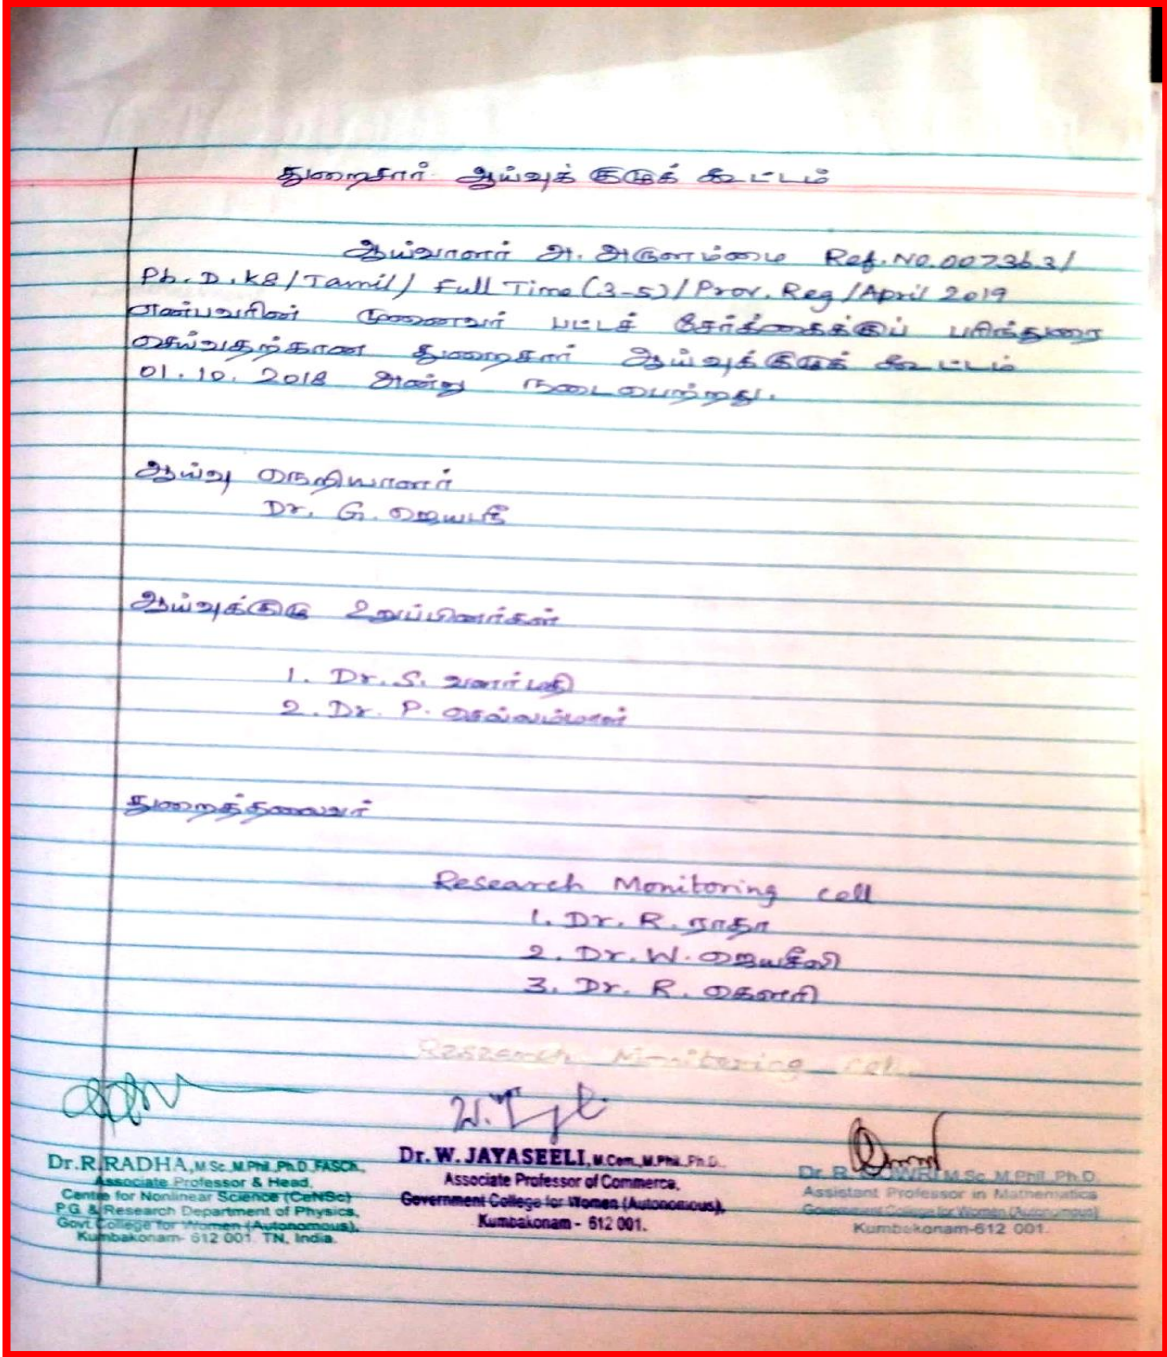 துறைசார் ஆய்வுக் குழுக் கூட்டம்
ஆய்வாளர் அ. அருளம்மை Ref.No.007363/
Ph.D.K8/Tamil/ Full Time (3-5)/Prov.Reg/April 2019
என்பவரின் முனைவர் பட்டச் சேர்க்கைக்குப் பரிந்துரை
செய்வதற்கான துறைசார் ஆய்வுக்குழுக் கூட்டம்
01.10.2018 அன்று நடைபெற்றது.
ஆய்வு நெறியாளர்
Dr. G. ஜெயஸ்ரீ
ஆய்வுக்குழு உறுப்பினர்கள்
1. Dr. S. வளர்மதி
2. Dr. P. செல்லம்மாள்
துறைத்தலைவர்
Research Monitoring cell
1. Dr. R. ராதா
2. Dr. W. ஜெயசீலி
3. Dr. R. கௌரி
Research Monitoring cell
Dr.R.RADHA, M.Sc.,M.Phil.,Ph.D.,FASCh.,
Associate Professor & Head,
Centre for Nonlinear Science (CeNSc)
P.G. & Research Department of Physics,
Govt.College for Women (Autonomous),
Kumbakonam- 612 001. TN, India.
Dr. W. JAYASEELI, M.Com.,M.Phil.,Ph.D.,
Associate Professor of Commerce,
Government College for Women (Autonomous),
Kumbakonam - 612 001.
Dr. R. GOWRI M.Sc.,M.Phil.,Ph.D.
Assistant Professor in Mathematics
Government College for Women (Autonomous)
Kumbakonam-612 001.